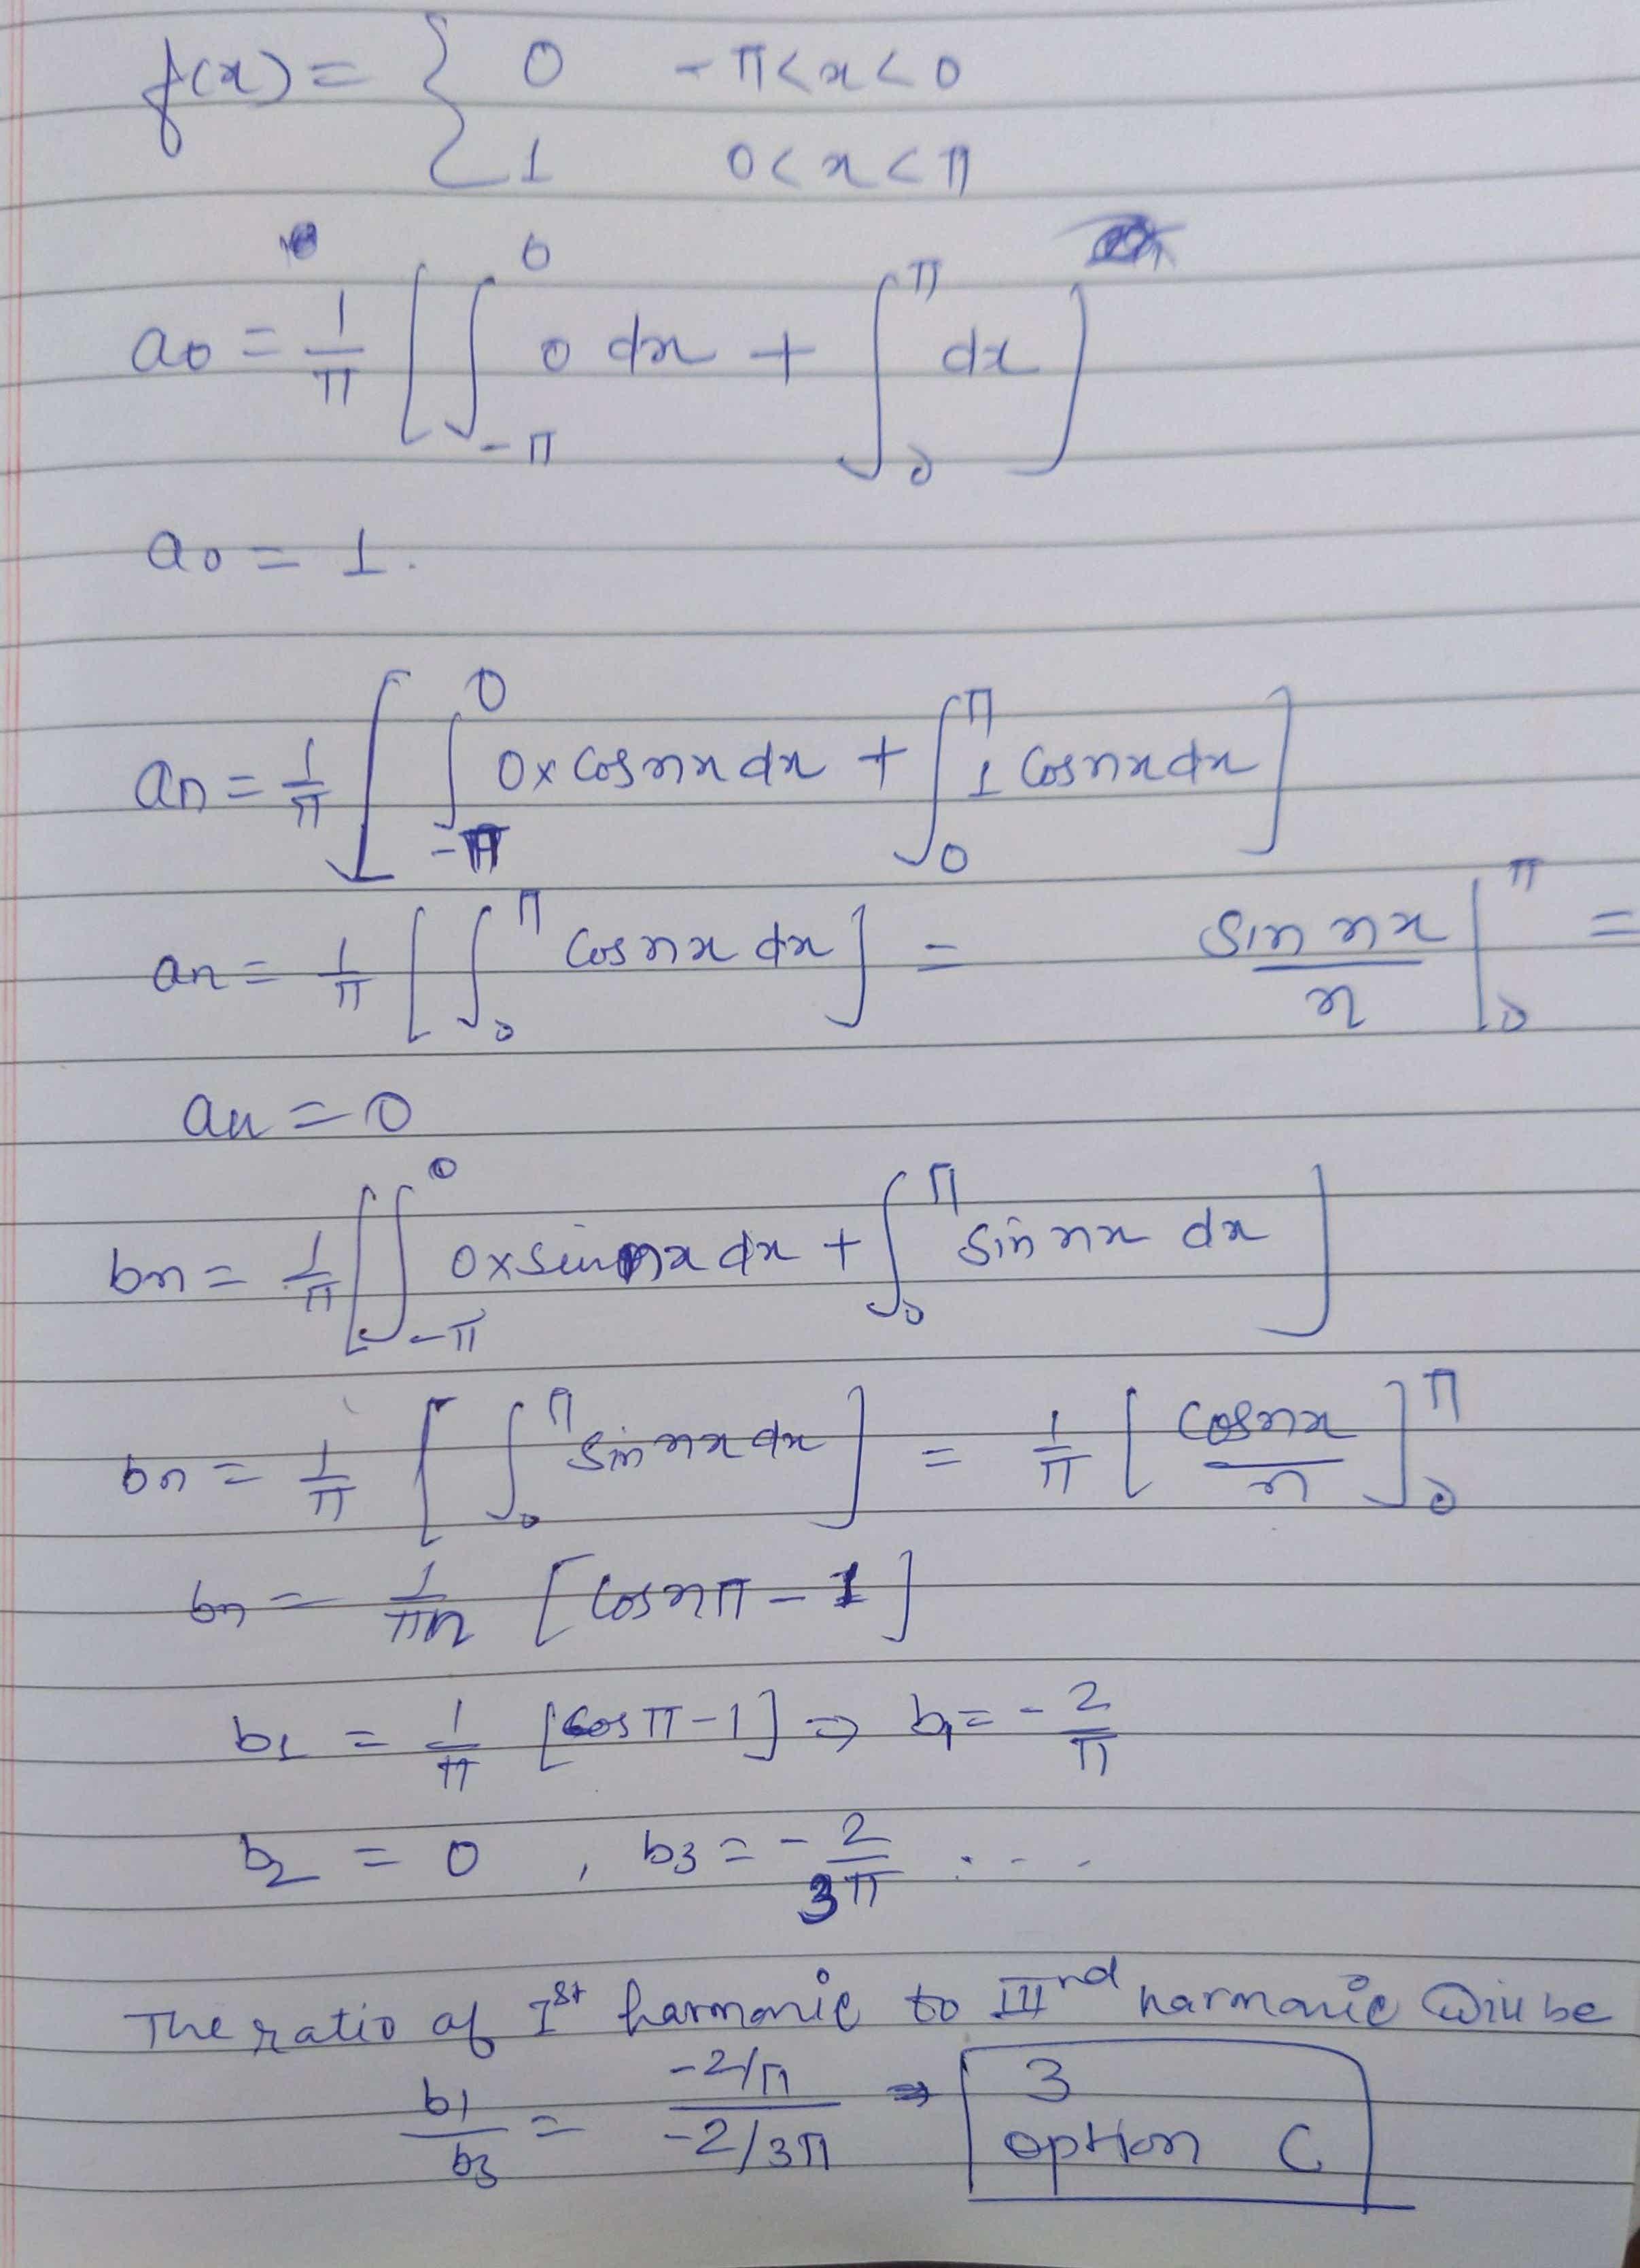 f(x) = { 0   -π<x<0
1   0<x<π
a0 = 1/π [ ∫_{-π}^{0} 0 dx + ∫_{0}^{π} dx ]
a0 = 1.
an = 1/π [ ∫_{-π}^{0} 0x cosnx dx + ∫_{0}^{π} 1 cosnx dx ]
an = 1/π [ ∫_{0}^{π} cosnx dx ] = sin nx / n |_{0}^{π} =
an = 0
bn = 1/π [ ∫_{-π}^{0} 0x sinnx dx + ∫_{0}^{π} sin nx dx ]
bn = 1/π [ ∫_{0}^{π} sin nx dx ] = 1/π [ cosnx / n ]_{0}^{π}
bn = 1/πn [cosnπ - 1]
b1 = 1/π [cosπ - 1] ⇒ b1 = - 2/π
b2 = 0 , b3 = - 2/3π . - - -
The ratio of Ist harmonic to IIIrd harmonic will be
b1/b3 = -2/π / -2/3π ⇒ 3
option C